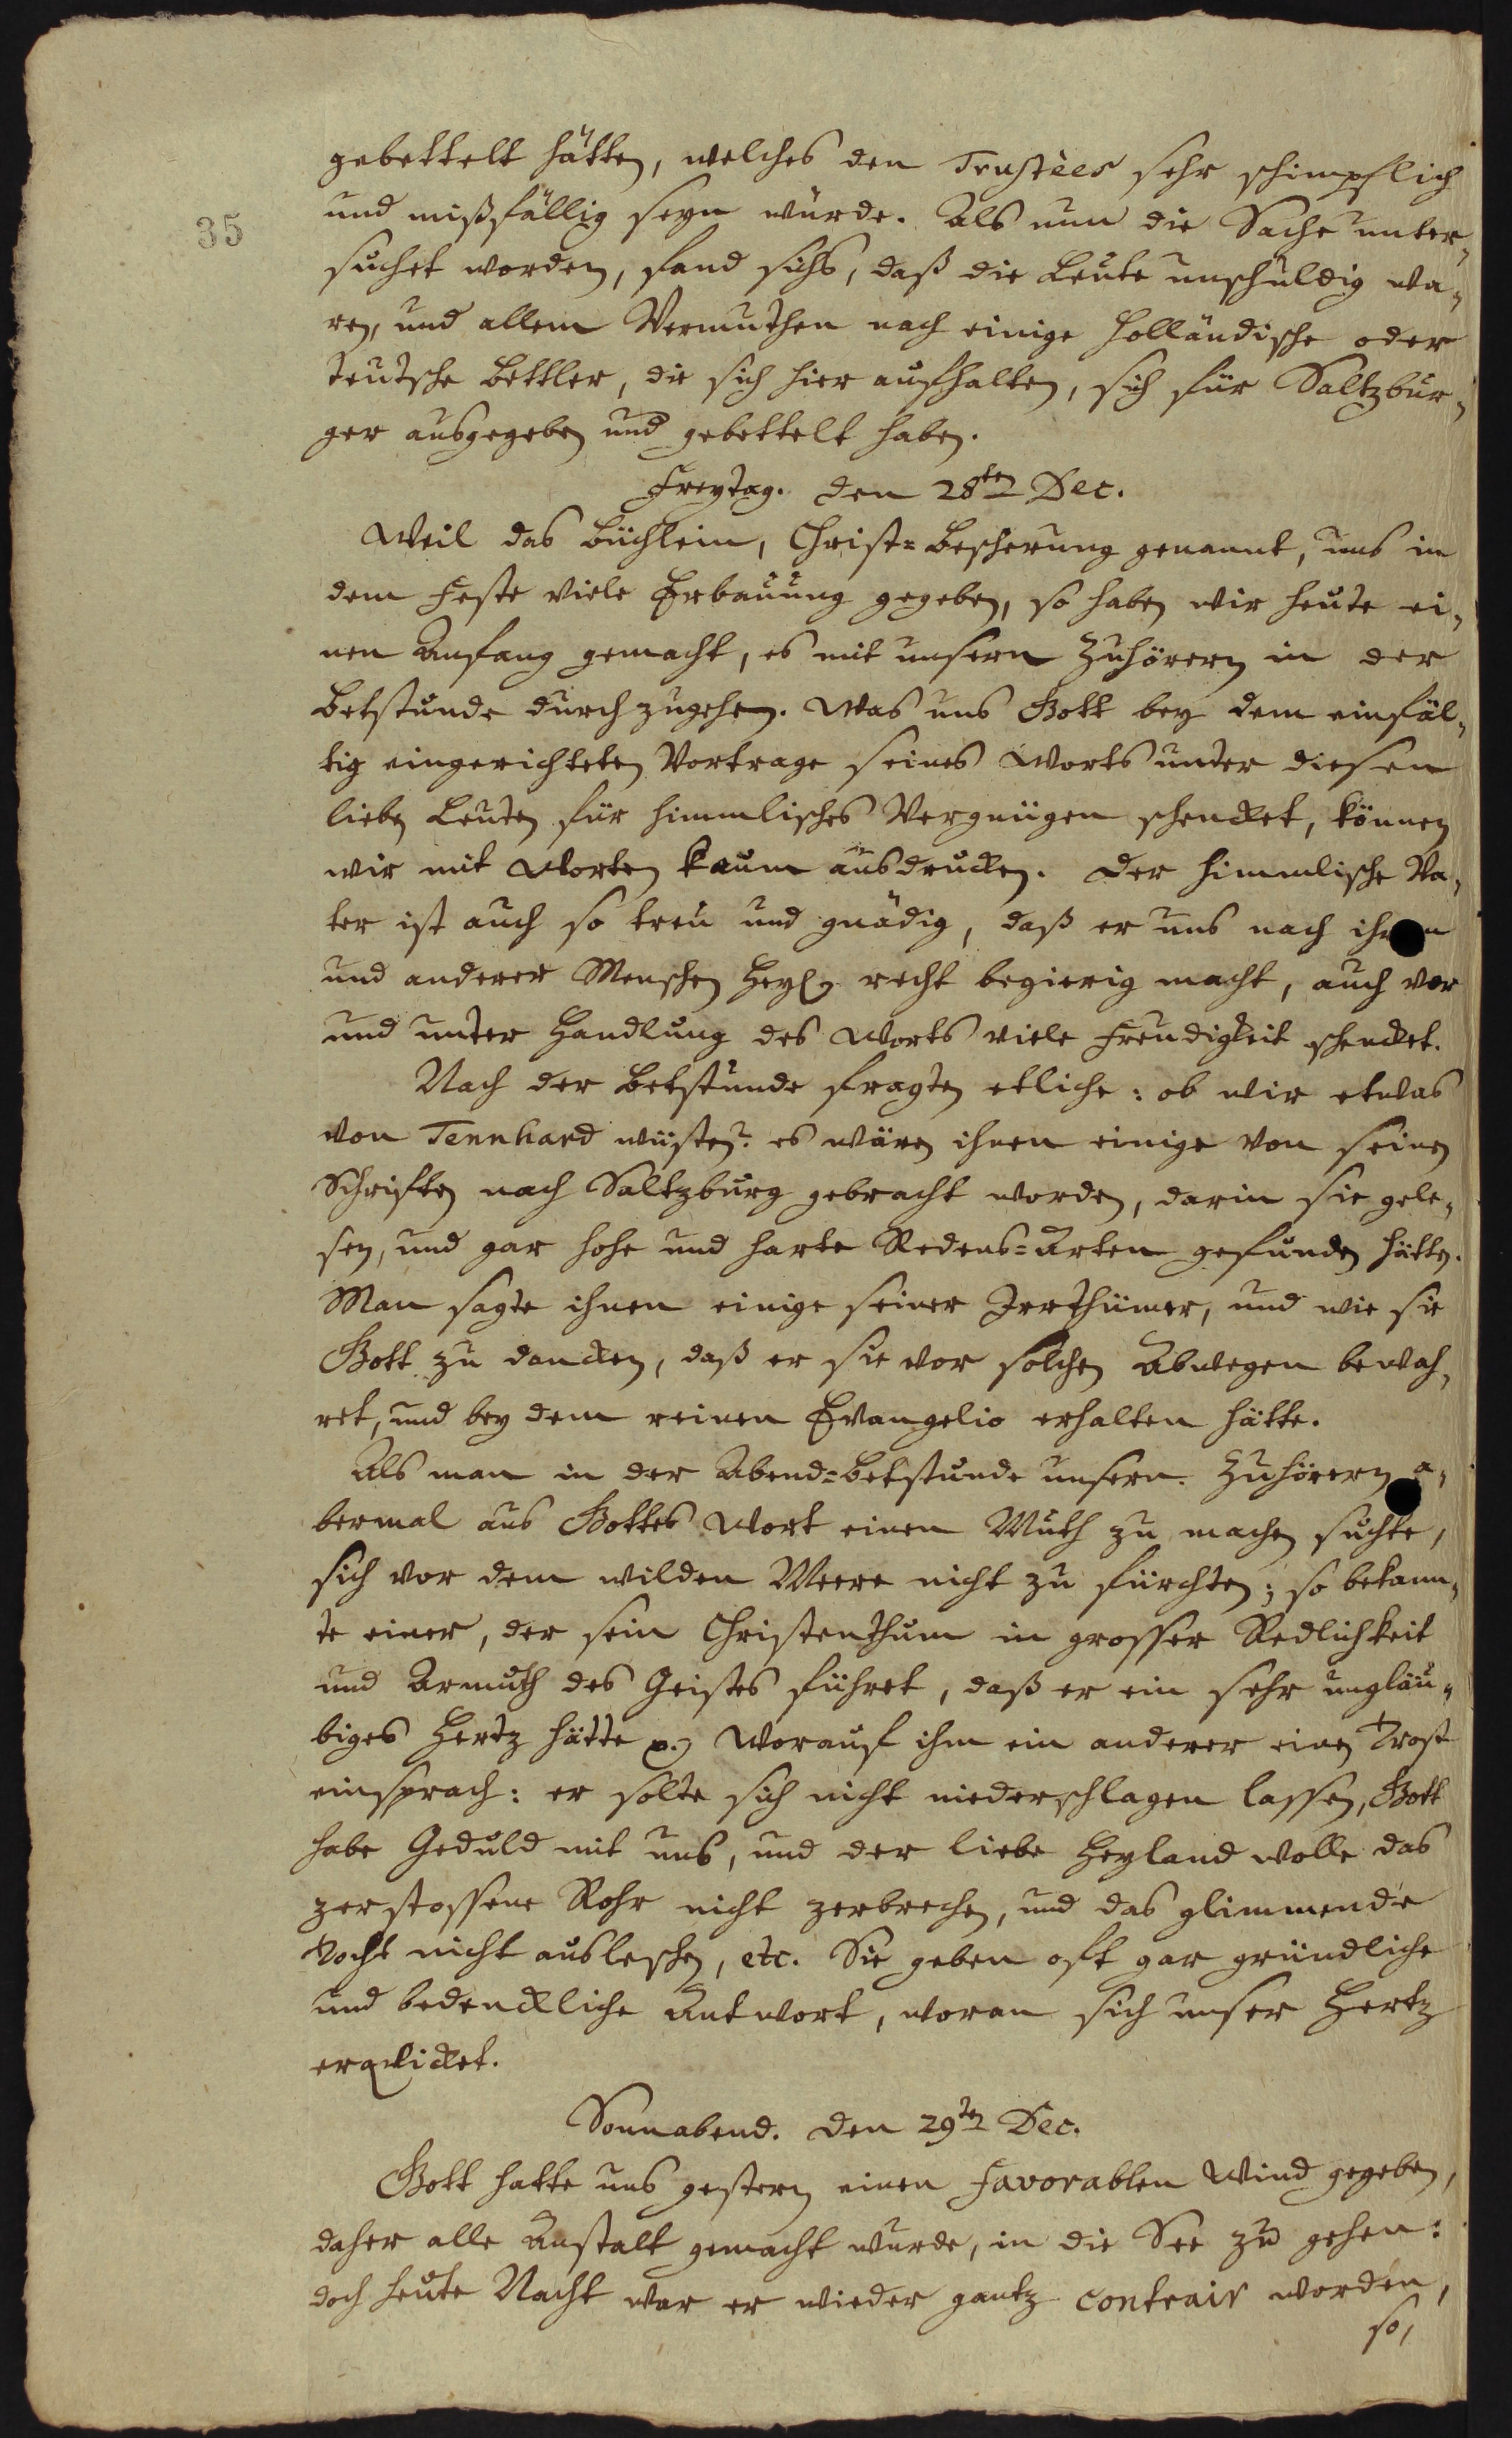 gebettelt hätten, welches den Trustèes sehr schimpflich
35
und mißfällig seyn würde. Als nun die Sache unter-
suchet worden, fand sichs, daß die Leute unschuldig wa-
ren, und allem Vermuthen nach einige holländische oder
teutsche Bettler, die sich hier aufhalten, sich für Saltzbur-
ger ausgegeben und gebettelt haben.
Freytag. den 28ten Dec.
Weil das Büchlein, Christ=Bescherung genannt, uns in
dem Feste viele Erbauung gegeben, so haben wir heute ei-
nen Anfang gemacht, es mit unsern Zuhörern in der
Betstunde durchzugehen. Was uns Gott bey dem einfäl-
tig eingerichteten Vortrage seines Worts unter diesen
lieben Leuten für himmlisches Vergnügen schencket, können
wir mit Worten kaum ausdrucken. Der himmlische Va-
ter ist auch so treu und gnädig, daß er uns nach
und anderer Menschen Heyl recht begierig macht, auch vor
und unter Handlung des Worts viele Freudigkeit schencket.
Nach der Betstunde fragten etliche: ob wir etwas
von Tennhard wüsten? es wären ihnen einige von seinen
Schriften nach Saltzburg gebracht worden, darin sie gele-
sen, und gar hohe und harte Redens=Arten gefunden hätten.
Man sagte ihnen einige seiner Irrthümer, und wie sie
Gott zu dancken, daß er sie vor solchen Abwegen bewah-
ret, und bey dem reinen Evangelio erhalten hätte.
Als man in der Abend=Betstunde unsern Zuhörern a-
bermal aus Gottes Wort einen Muth zu machen suchte,
sich vor dem wilden Meere nicht zu fürchten; so bekann-
te einer, der sein Christenthum in grosser Redlichkeit
und Armuth des Geistes führet, daß er ein sehr ungläu-
biges Hertz hätte Worauf ihm ein anderer einen Trost
einsprach: er solte sich nicht niederschlagen lassen, Gott
habe Geduld mit uns, und der liebe Heyland wolle das
zerstossene Rohr nicht zerbrechen, und das glimmende
Tocht nicht ausleschen, etc. Sie geben oft gar gründliche
und bedenckliche Antwort, woran sich unser Hertz
erqvicket.
Sonnabend. den 29ten Dec.
Gott hatte uns gestern einen favorablen Wind gegeben,
daher alle Anstalt gemacht wurde, in die See zu gehen:
doch heute Nacht war er wieder gantz contrair worden,
so,